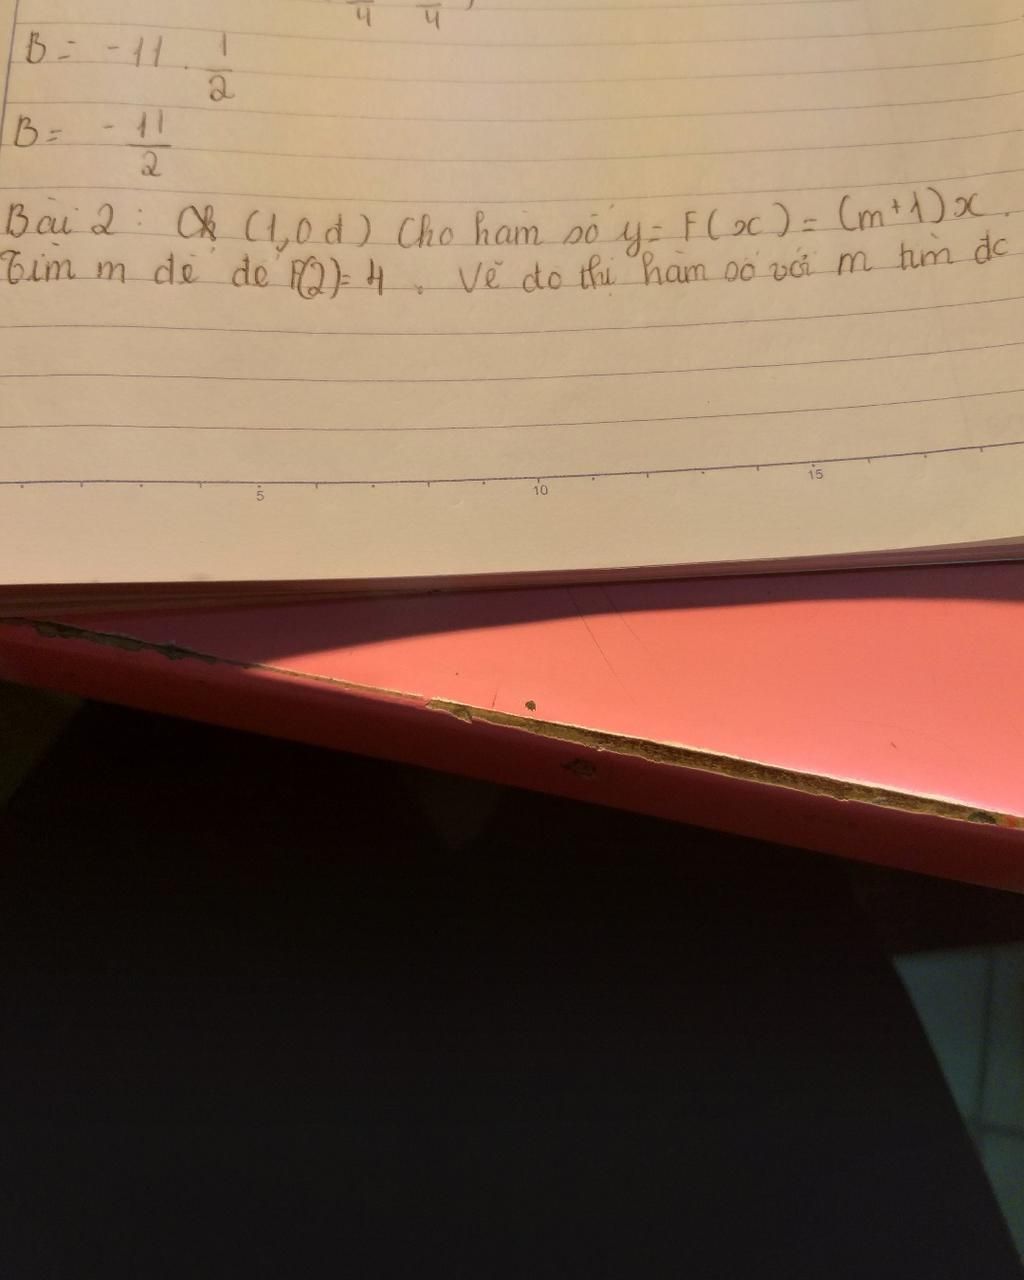 4 4
B = -11 . 1/2
B = - 11/2
Bài 2 : (1,0 đ) Cho hàm số y = F(x) = (m+1)x .
Tìm m để để F(2) = 4 . Vẽ đo thị hàm số với m tìm dc
5 10 15